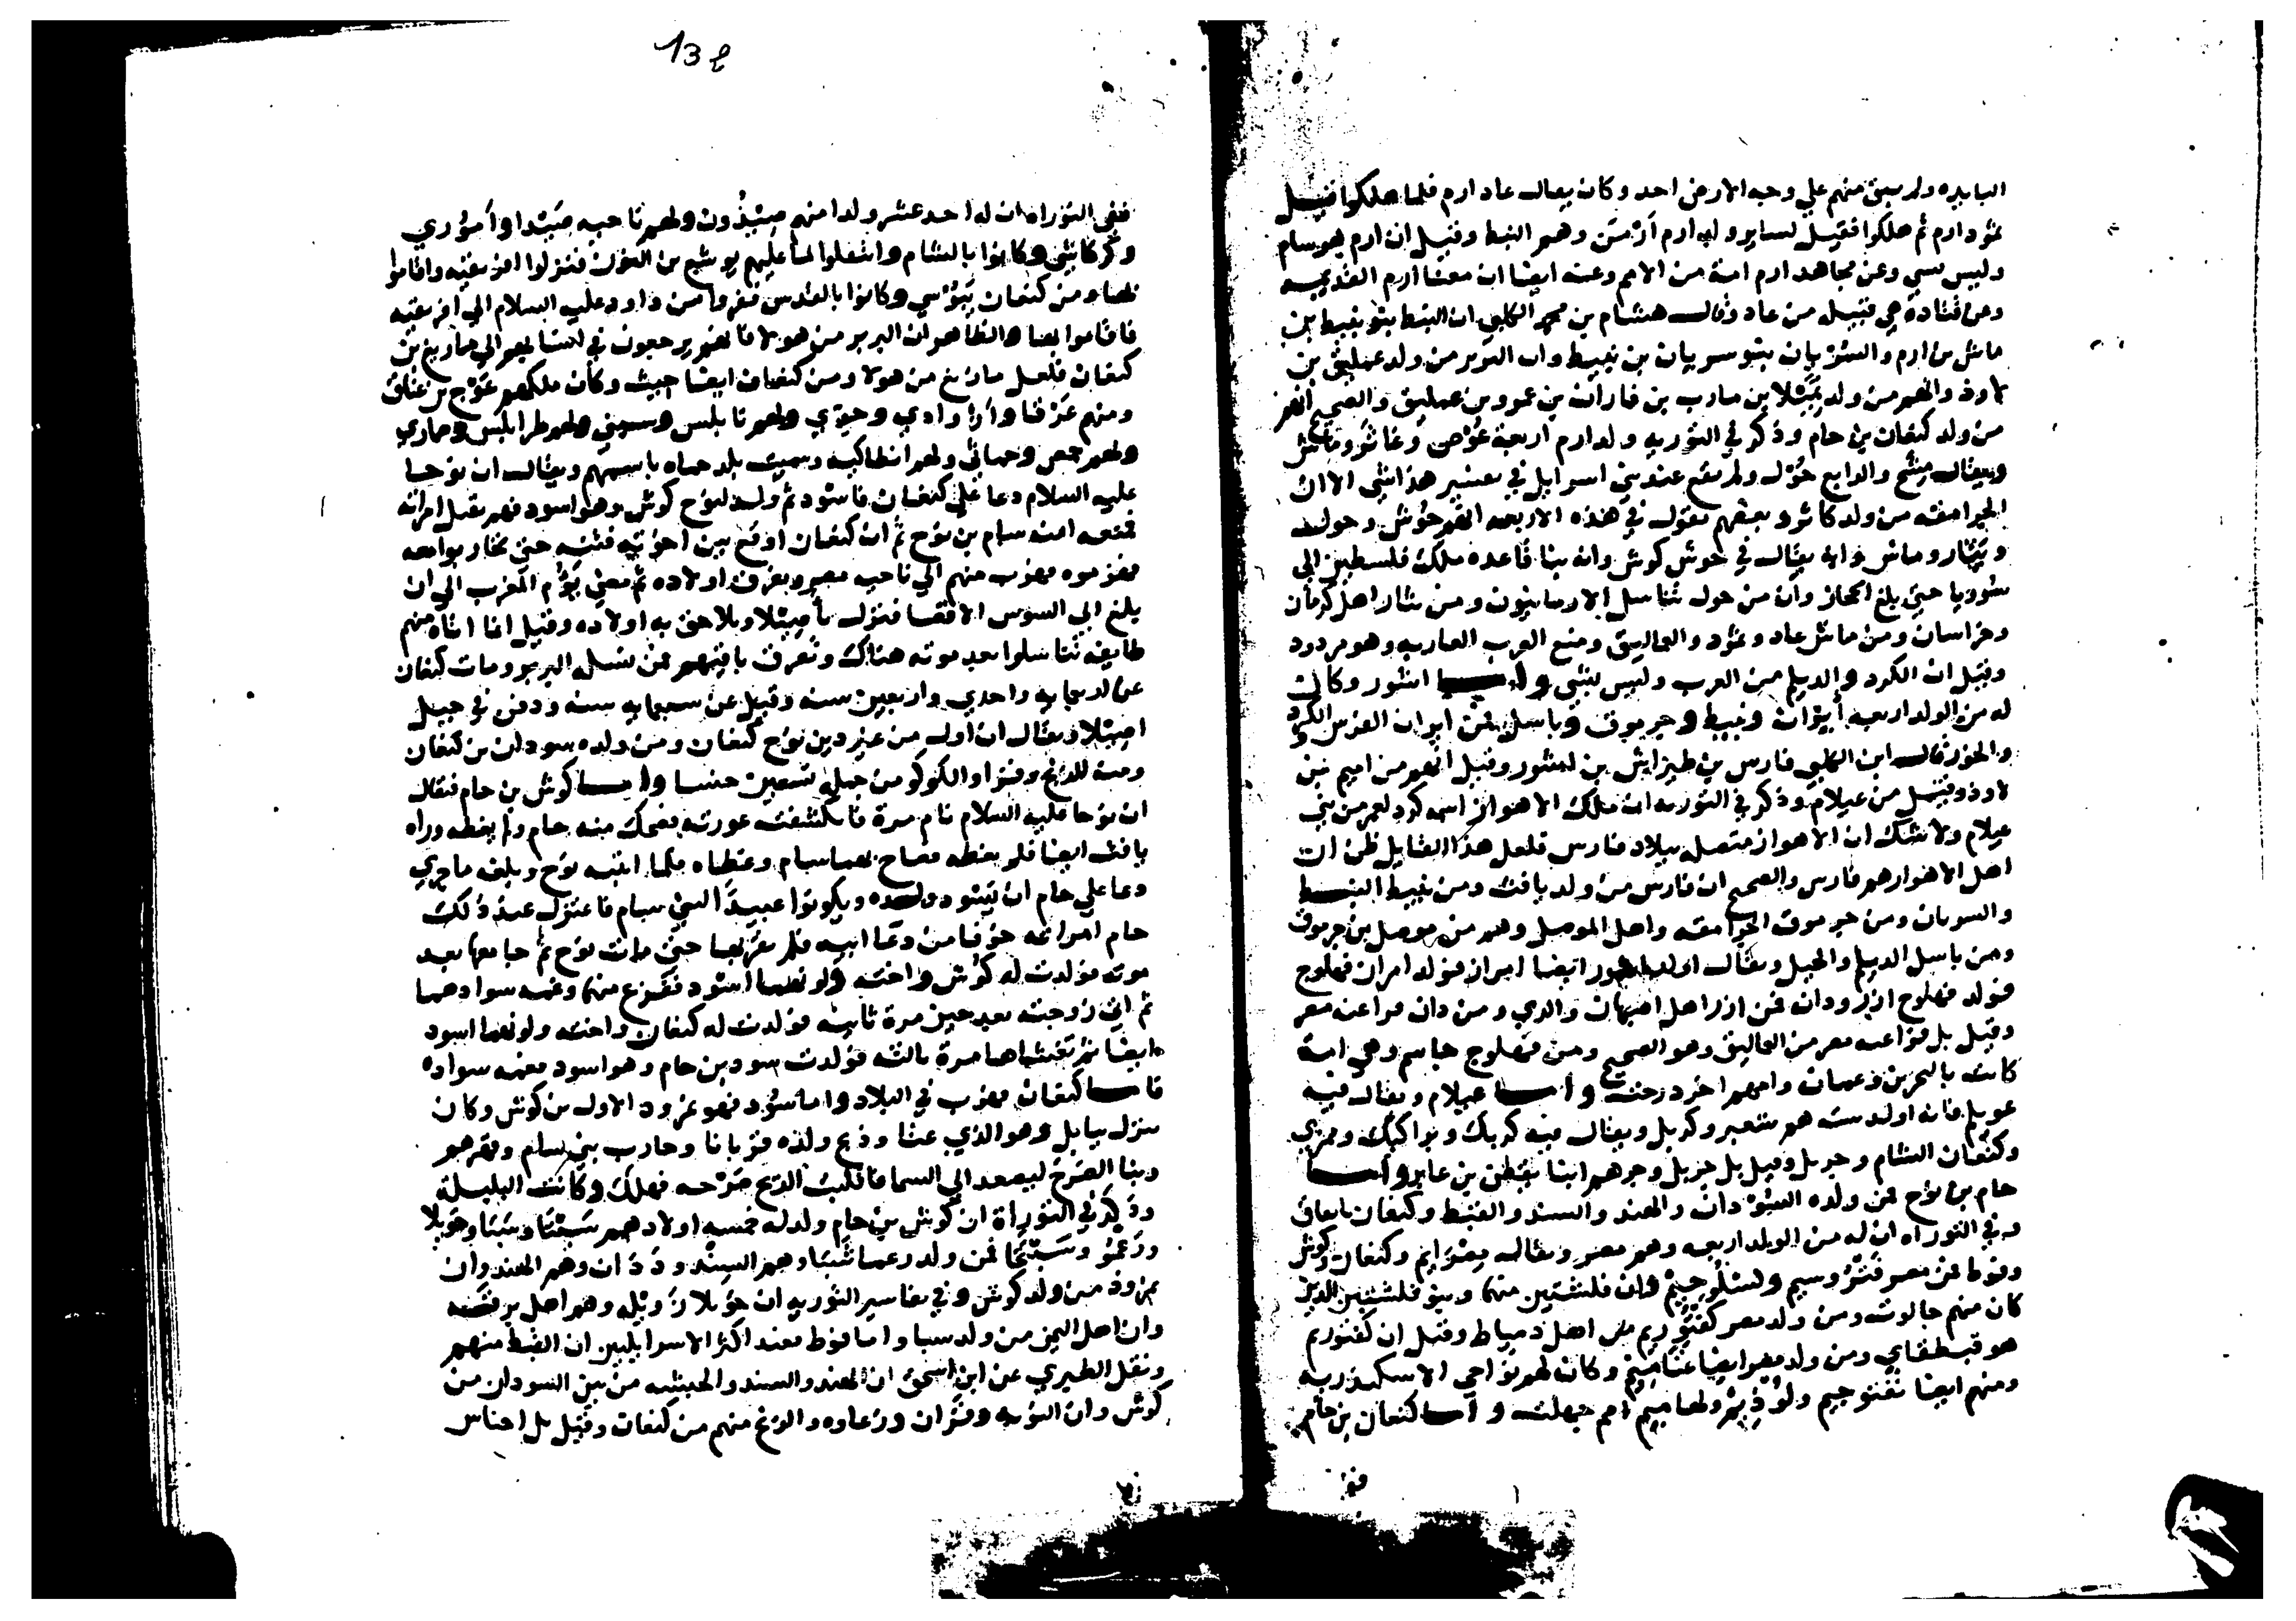 البايده ولم يبق منهم علي وجه الارض احد وكان يقال عاد ارم فلما هلكوا قيل
ثمود ارم ثم هلكوا فقيل لساير ولد ارم ارمن وهم النبط وقيل ان ارم هو سام
وليس بشي وعن مجاهد ارم امة من الامم وعنه ايضا ان معنا ارم القديمه
وعن قتادة هي قبيله من عاد وقال هشام بن محمد الكلبي ان النبط بنو نبيط بن
ماش بن ارم والسريان بنو سريان بن نبيط وان البربر من ولد عمليق بن
لاوذ وانهم من ولد ثميلا بن مارب بن فاران بن عمرو بن عمليق والصحيح انهم
من ولد كنعان بن حام وذكر في التوريه ولد ارم اربعة عُوْص وغاثر وماش
ويقال مِشَح والرابع حُوْل ولم يقع عند بني اسرايل في تفسير هذا شي الا ان
الجرامقه من ولد كاثر وبعضهم يقول في هذه الاربعه انهم حوش وحول
وثيثار وماش وانه يقال في حوش كوش وانه بنا قاعده ملك فلسطين الي
سوريا حتي بلغ الحجاز وان من حول تناسل الارمانيون ومن يثار اهل كرمان
وخراسان ومن ماش عاد وثمود والعماليق ومنع العرب العاربه وهو مردود
وقيل ان الكرد والديلم من العرب وليس بشي واما اشور وكان
له من الولد اربعه أيران ونبيط وجرموق وباسل فمن ايران الفرس والكرد
والخزر قال ابن الكلبي فارس بن طيراش بن اشور وقيل انهم من اميم بن
لاوذ وقيل من عيلام وذكر في التوريه ان ملك الاهواز اسمه كرد لعمر من بني
عيلام ولا شك ان الاهواز متصله ببلاد فارس فلعل هذا القايل ظن ان
اهل الاهواز هم فارس والصحيح ان فارس من ولد يافث ومن نبيط النبط
والسريان ومن جرموق الجرامقه واهل الموصل وهم من موصل بن جرموق
ومن باسل الديلم والجبل ويقال اولد اشور ايضا ايران فولد ايران فهلوج
فولد فهلوج ازر ودان فمن ازر اهل اصبهان والري ومن دان فراعنه مصر
وقيل بل فراعنه مصر من العماليق وهو الصحيح ومن فهلوج جاسم وهي امة
كانت بالبحرين وعمان وامهم اخر درجت واما عيلام ويقال فيه
عويلم فانه اولد ستة هم شعير وكربل ويقال فيه كربك وبواكيك ومهري
وكنعان الشام وجربل وقيل بل جزيل وجرهم ابنا يقطن بن عابر واما
حام بن نوح فمن ولده السودان والهند والسند والقبط وكنعان باتفاق
وفي التوراه ان له من الولد اربعه وهم مصر ويقال مصرايم وكنعان وكوش
وفوط فمن مصر فتروسيم وكسلوحيم وان فلشتين منهما وبنو فلشتين الذين
كان منهم جالوت ومن ولد مصر كفتوريم هم اهل دمياط وقيل ان كفتوريم
هو قبط قفاي ومن ولد مصر ايضا عناميم وكان لهم نواحي الاسكندريه
ومنهم ايضا نفتوحيم ولوذيم ولهابيم امم جهلت واما كنعان بن حام
ففي
13
ففي التوراه ان له احد عشر ولدا منهم صيذون ولهم ناحيه صيدا وأموري
وكركاشي وكانوا بالشام وانتقلوا لما غلبهم يوشع بن النون فنزلوا افريقيه واقاموا
بها ومن كنعان يبوسي وكانوا بالقدس ففروا من داود عليه السلام الي افريقيه
فاقاموا بها والظاهر ان البربر من هولا فانهم يرجعون في انسابهم الي مازيغ بن
كنعان فلعل مازيغ من هولا ومن كنعان ايضا حيث وكان ملكهم عَوْج بن عناق
ومنهم عرقا وأروادي وحوي ولهم نابلس وسيني ولهم طرابلس وصماري
ولهم حمص وحماثي ولهم انطاكيه وسميت بلد حماه باسمهم ويقال ان نوحا
عليه السلام دعا علي كنعان فاسود ثم ولد لنوح كوش وهو اسود فهم بقتل امراته
فمنعه ابنه سام بن نوح ثم ان كنعان اوقع بين اخوته فتنه حتي تحاربوا معه
فهزموه فهرب منهم الي ناحيه مصر وتفرق اولاده ثم مضي يؤم المغرب الي ان
بلغ الي السوس الاقصا فنزل بأصيلا وتلاحق به اولاده وقيل انما اتاه منهم
طايفه تناسلوا بعد موته هناك وتفرق باقيهم فمن نسله البربر ومات كنعان
عن اربعمايه واحدي واربعين سنه وقيل عن سبعمايه سنه ودفن في جبل
اصيلا ويقال ان اول من غير دين نوح كنعان ومن ولده سودان بن كنعان
ومنه للزنج وفزا والكوكو من جمله تسعين جنسا واما كوش بن حام فيقال
ان نوحا عليه السلام نام مرة فانكشفت عورته فضحك منه حام ولم يغطه وراه
يافث ايضا فلم يغطه فصاح بهما سام وغطاه فلما انتبه نوح وبلغه ما جري
دعا علي حام ان يسود ولده ويكونوا عبيدا لبني سام فاعتزل عند ذلك
حام امراته خوفا من دعا ابيه فلم يقربها حتي مات نوح ثم جامعها بعد
موته فولدت له كوش واخته ولونهما اسود ففزع منهما وغمه سوادهما
ثم اتي زوجته بعد حين مرة ثانيه فولدت له كنعان واخته ولونهما اسود
ايضا ثم تغشاها مرة ثالثه فولدت سود بن حام وهو اسود فغمه سواده
فاما كنعان فهرب في البلاد واما سود فهو نمرود الاول بن كوش وكان
ينزل ببابل وهو الذي عثا وذبح ولده قربانا وحارب بني سام وقهرهم
وبنا الصرح ليصعد الي السما فاقلبت الريح صرحه فهلك وكانت البلبله
وذكر في التوراة ان كوش بن حام ولد له خمسه اولاد هم سَبْتَا وسَبَا وحَويلا
ورَعْمو وسَبْتخا فمن ولد رعما شَبَا وهم السند ودَدَان وهم الهند وان
نمروذ من ولد كوش وفي تفاسير التوريه ان حويلا زويله وهم اهل برقه
وان اهل اليمن من ولد سبا واما فوط فعند اكثر الاسرايليين ان القبط منهم
ونقل الطبري عن ابن اسحق ان الهند والسند والحبشه من بني السودان من
كوش وان النوبه وفزان وزغاوه والزنج منهم من كنعان وقيل بل اجناس